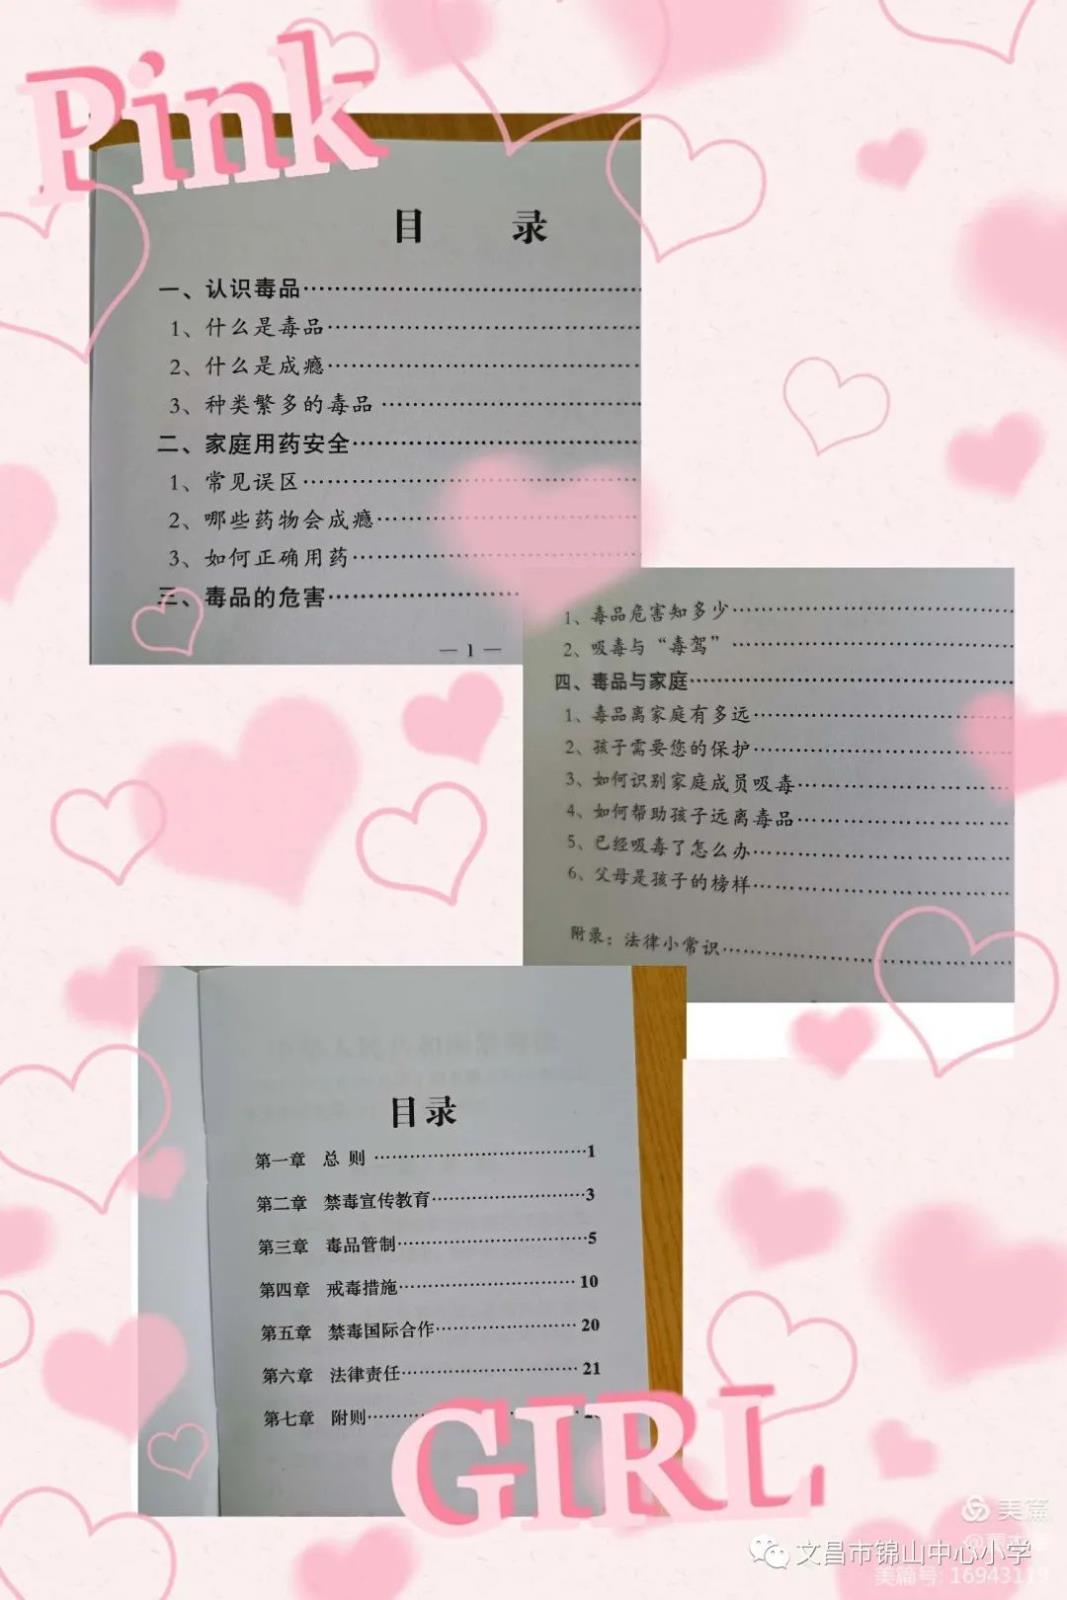 Pink
目 录
一、认识毒品
1、什么是毒品
2、什么是成瘾
3、种类繁多的毒品
二、家庭用药安全
1、常见误区
2、哪些药物会成瘾
3、如何正确用药
三、毒品的危害
— 1 —
1、毒品危害知多少
2、吸毒与“毒驾”
四、毒品与家庭
1、毒品离家庭有多远
2、孩子需要您的保护
3、如何识别家庭成员吸毒
4、如何帮助孩子远离毒品
5、已经吸毒了怎么办
6、父母是孩子的榜样
附录：法律小常识
目录
第一章 总 则 1
第二章 禁毒宣传教育 3
第三章 毒品管制 5
第四章 戒毒措施 10
第五章 禁毒国际合作 20
第六章 法律责任 21
第七章 附则
GIRL
美篇
文昌市锦山中心小学
美篇号: 16943119